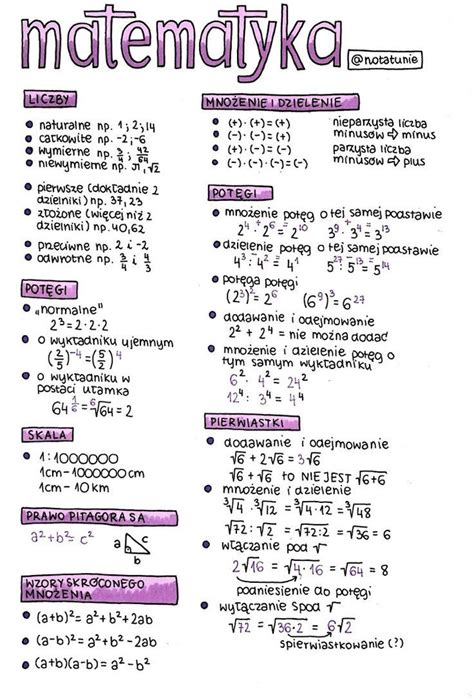 matematyka
@notatunie
LICZBY
naturalne np. 1; 2; 14
całkowite np. -2; -6
wymierne np. 3/4; 42/64
niewymierne np. π, √2
pierwsze (dokładnie 2
dzielniki) np. 37, 23
złożone (więcej niż 2
dzielniki) np. 40, 62
przeciwne np. 2 i -2
odwrotne np. 3/4 i 4/3
POTĘGI
„normalne"
2³ = 2·2·2
o wykładniku ujemnym
(2/5)⁻⁴ = (5/2)⁴
o wykładniku w
postaci ułamka
64^(1/6) = ⁶√64 = 2
SKALA
1:1000000
1cm - 1000000cm
1cm - 10 km
PRAWO PITAGORASA
a² + b² = c²
a c
b
WZORY SKRÓCONEGO
MNOŻENIA
(a+b)² = a² + b² + 2ab
(a-b)² = a² + b² - 2ab
(a+b)(a-b) = a² - b²
MNOŻENIE I DZIELENIE
(+)·(+) = (+)
(-)·(-) = (+)
(+)·(-) = (-)
(-)·(-)·(-) = (-)
nieparzysta liczba
minusów ⇨ minus
parzysta liczba
minusów ⇨ plus
POTĘGI
mnożenie potęg o tej samej podstawie
2⁴ · 2⁶ = 2¹⁰ 3⁹ · 3⁴ = 3¹³
dzielenie potęg o tej samej podstawie
4³ : 4² = 4¹ 5²⁷ : 5¹³ = 5¹⁴
potęga potęgi
(2³)² = 2⁶ (6⁹)³ = 6²⁷
dodawanie i odejmowanie
2² + 2⁴ = nie można dodać
mnożenie i dzielenie potęg o
tym samym wykładniku
6² · 4² = 24²
12⁴ : 3⁴ = 4⁴
PIERWIASTKI
dodawanie i odejmowanie
√6 + 2√6 = 3√6
√6 + √6 to NIE JEST √6+6
mnożenie i dzielenie
³√4 · ³√12 = ³√4·12 = ³√48
√72 : √2 = √72:2 = √36 = 6
włączanie pod √
2√16 = √4·16 = √64 = 8
podniesienie do potęgi
wyłączanie spod √
√72 = √36·2 = 6√2
spierwiastkowanie (?)